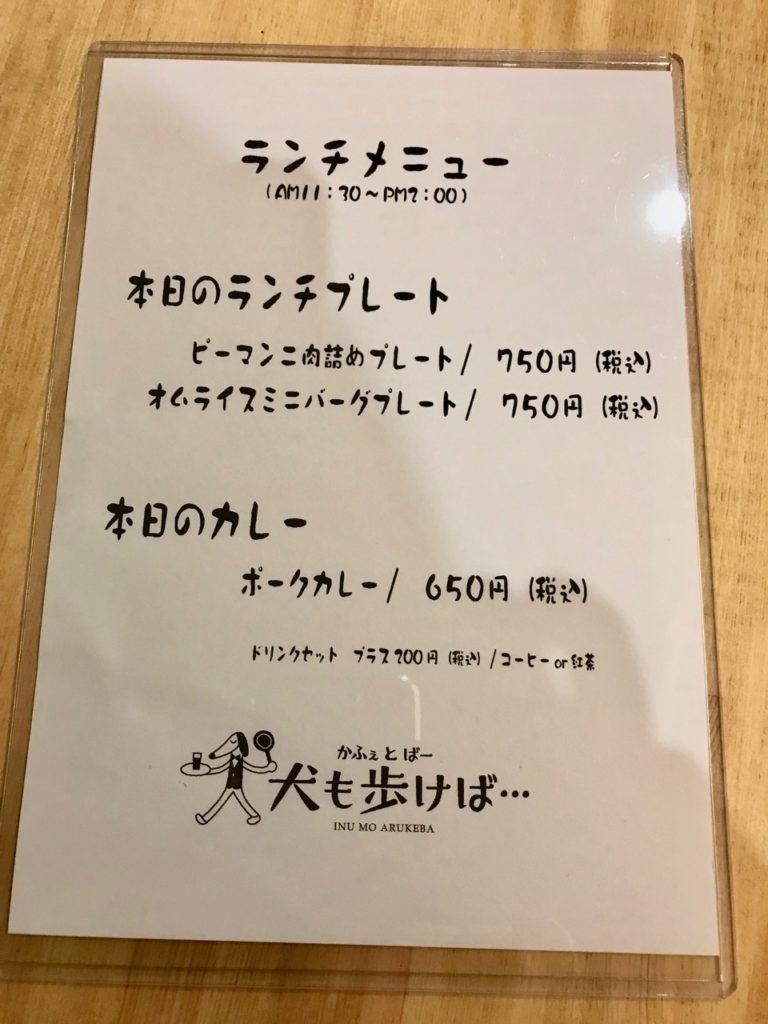 ランチメニュー
(AM11:30~PM2:00)
本日のランチプレート
ピーマンニ肉詰めプレート/ 750円 (税込)
オムライスミニバーグプレート/ 750円 (税込)
本日のカレー
ポークカレー/ 650円 (税込)
ドリンクセット プラス200円 (税込) /コーヒーor紅茶
かふぇとばー
犬も歩けば…
INU MO ARUKEBA